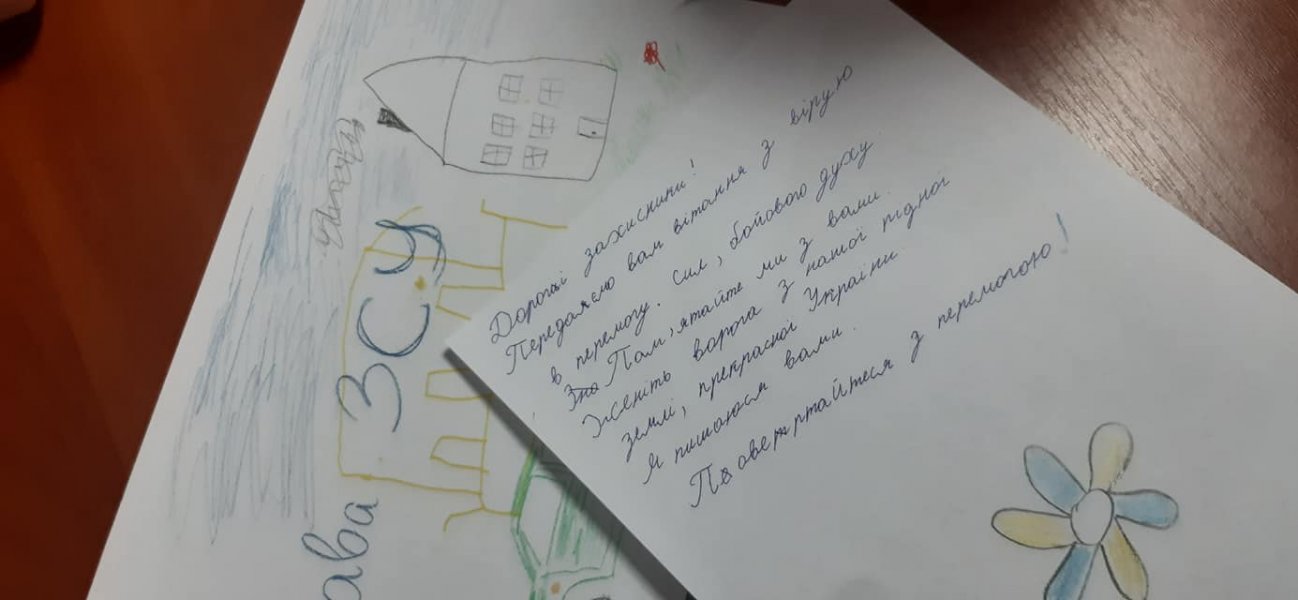 Дорогі захисники!
Передаємо вам вітання з вірую
в перемогу. Сил, бойового духу.
Зна Пам,ятайте ми з вами.
Женіть ворога з нашої рідної
землі, прекрасної України
Я пишаюся вами.
Поавертртайтеся з перемогою!
ава ЗСУ